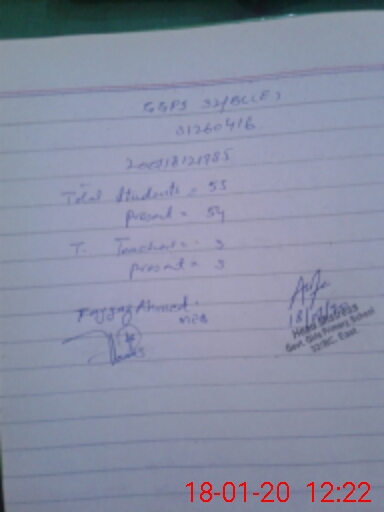 GGPS 32/BC(E)
31260416
Total Students = 55
present = 54
T. Teachers = 3
present = 3
Fayyaz Ahmed
MEA
Head Mistress
Govt. Girls Primary School
32/BC, East
18-01-20 12:22